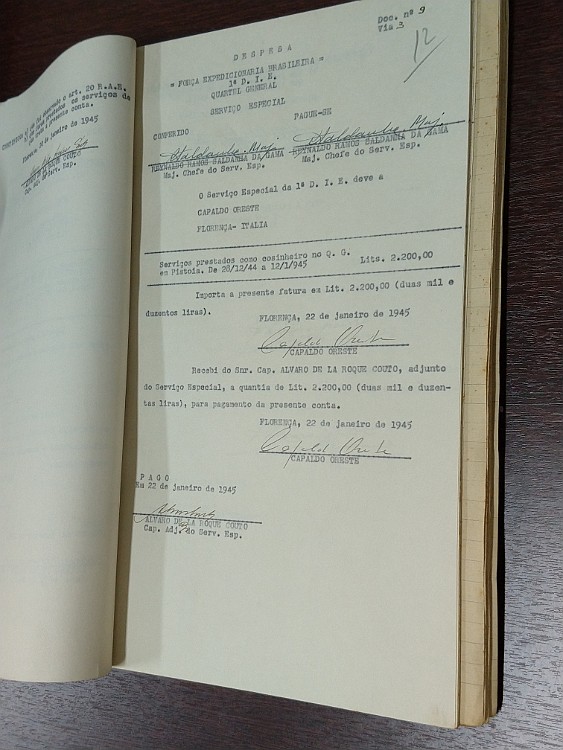 art. 20 R.A.E.
os serviços de
presente conta.
de janeiro de 1945
COUTO
Cap. Adj. Serv. Esp.
Doc. nº 9
Via 3
12
D E S P E S A
= FORÇA EXPEDICIONARIA BRASILEIRA =
1ª D. I. E.
QUARTEL GENERAL
SERVIÇO ESPECIAL
CONFERIDO PAGUE-SE
REYNALDO RAMOS SALDANHA DA GAMA REYNALDO RAMOS SALDANHA DA GAMA
Maj. Chefe do Serv. Esp. Maj. Chefe do Serv. Esp.
O Serviço Especial da 1ª D. I. E. deve a
CAPALDO ORESTE
FLORENÇA- ITALIA
Serviços prestados como cosinheiro no Q. G.
em Pistoia. De 28/12/44 a 12/1/945 Lits. 2.200,00
Importa a presente fatura em Lit. 2.200,00 (duas mil e
duzentos liras).
FLORENÇA, 22 de janeiro de 1945
Capaldo Oreste
CAPALDO ORESTE
Recebi do Snr. Cap. ALVARO DE LA ROQUE COUTO, adjunto
do Serviço Especial, a quantia de Lit. 2.200,00 (duas mil e duzen-
tas liras), para pagamento da presente conta.
FLORENÇA, 22 de janeiro de 1945
Capaldo Oreste
CAPALDO ORESTE
P A G O
Em 22 de janeiro de 1945
ALVARO DE LA ROQUE COUTO
Cap. Adj. do Serv. Esp.